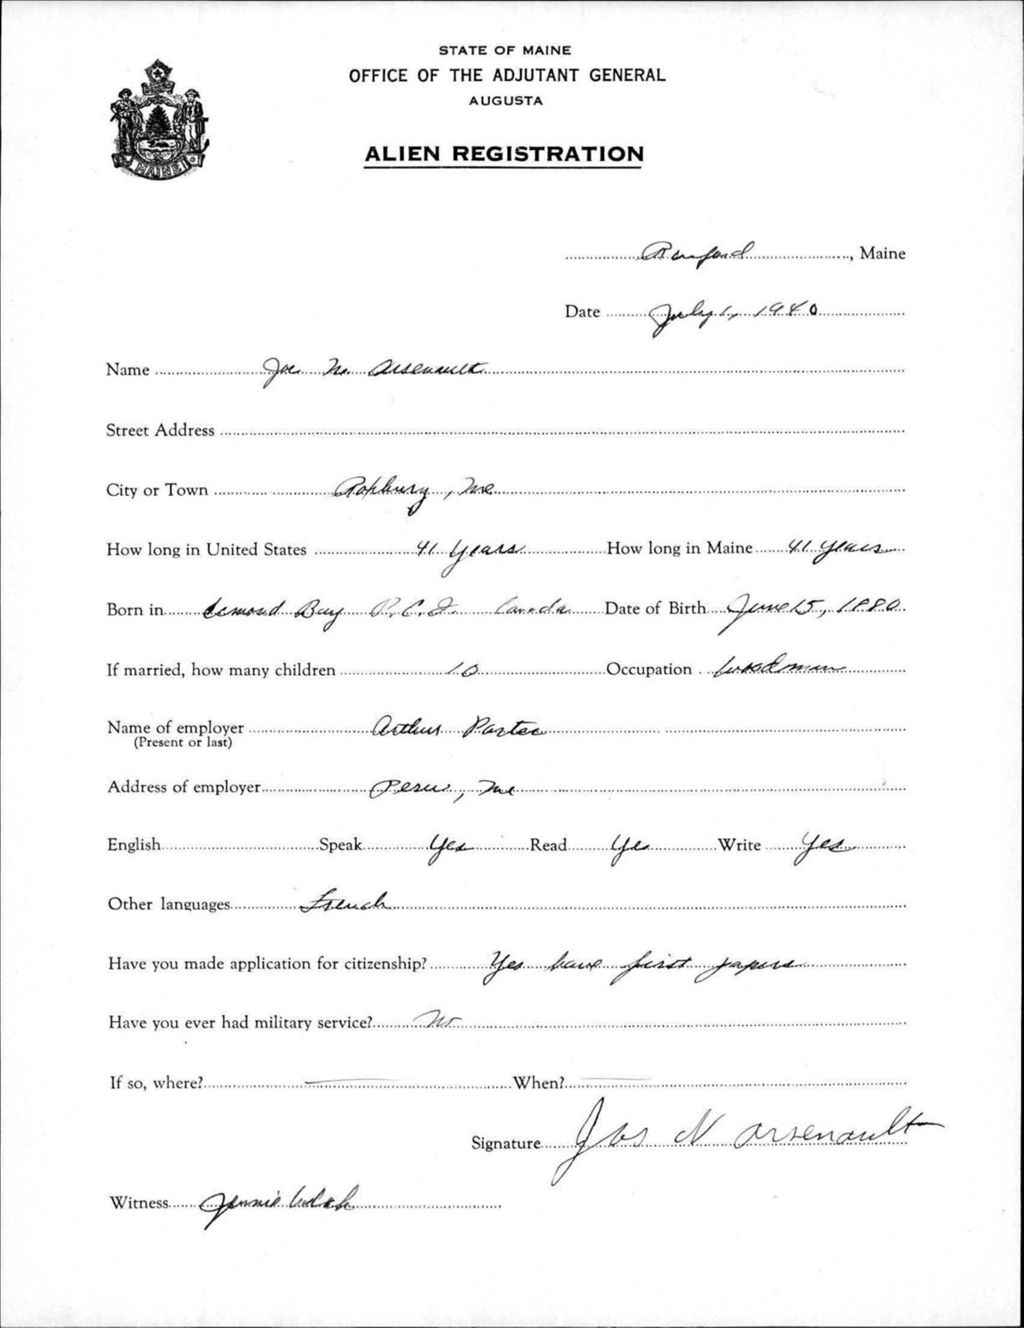 STATE OF MAINE
OFFICE OF THE ADJUTANT GENERAL
AUGUSTA
ALIEN REGISTRATION
MAINE
Rumford, Maine
Date July 1, 1940
Name Joe N. Arsenault
Street Address
City or Town Roxbury, Me.
How long in United States 41 Years How long in Maine 41 years
Born in Bay Canada Date of Birth June 15, 1880
If married, how many children 10 Occupation Woodman
Name of employer Arthur
(Present or last)
Address of employer Peru, Me
English Speak Yes Read Yes Write Yes
Other languages French
Have you made application for citizenship? Yes have first papers
Have you ever had military service? No
If so, where? When?
Signature Jos N Arsenault
Witness Jennie